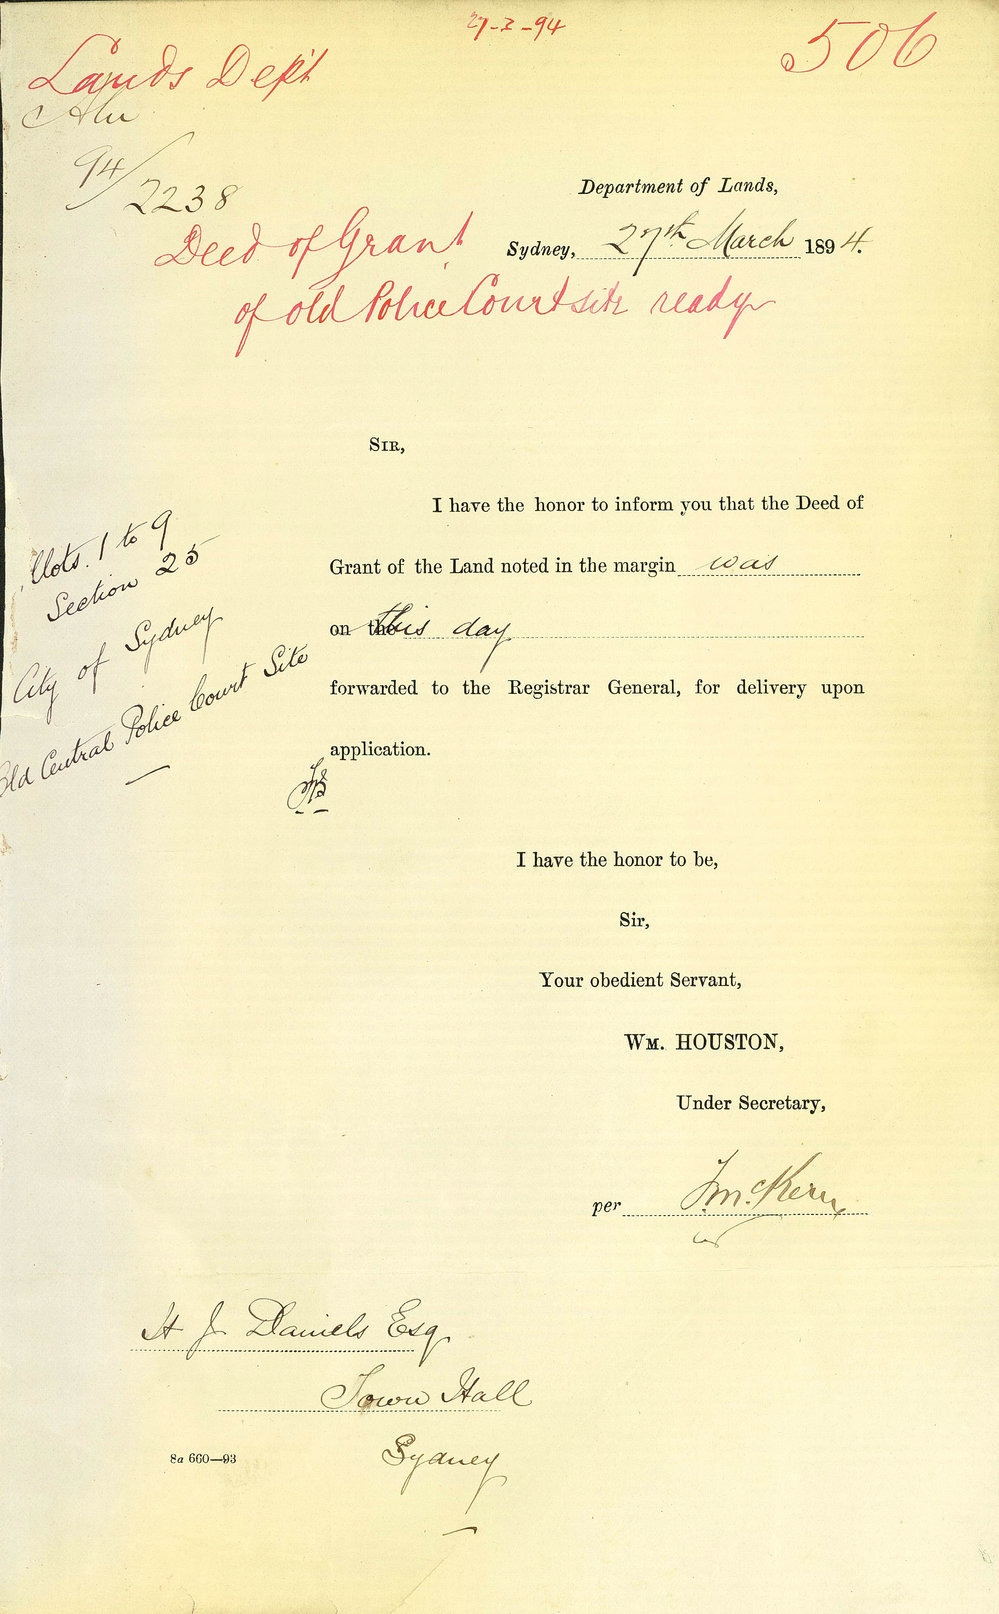 27-3-94
506
Lands Dep't
Aln
94/2238
Department of Lands,
Sydney, 27th March 1894.
Deed of Grant
of old Police Court site ready
SIR,
I have the honor to inform you that the Deed of
Grant of the Land noted in the margin was
on the this day
forwarded to the Registrar General, for delivery upon
application.
Allots. 1 to 9
Section 25
City of Sydney
Old Central Police Court Site
I have the honor to be,
Sir,
Your obedient Servant,
WM. HOUSTON,
Under Secretary,
per J. McKern
H J Daniels Esq
Town Hall
Sydney
8a 660—93